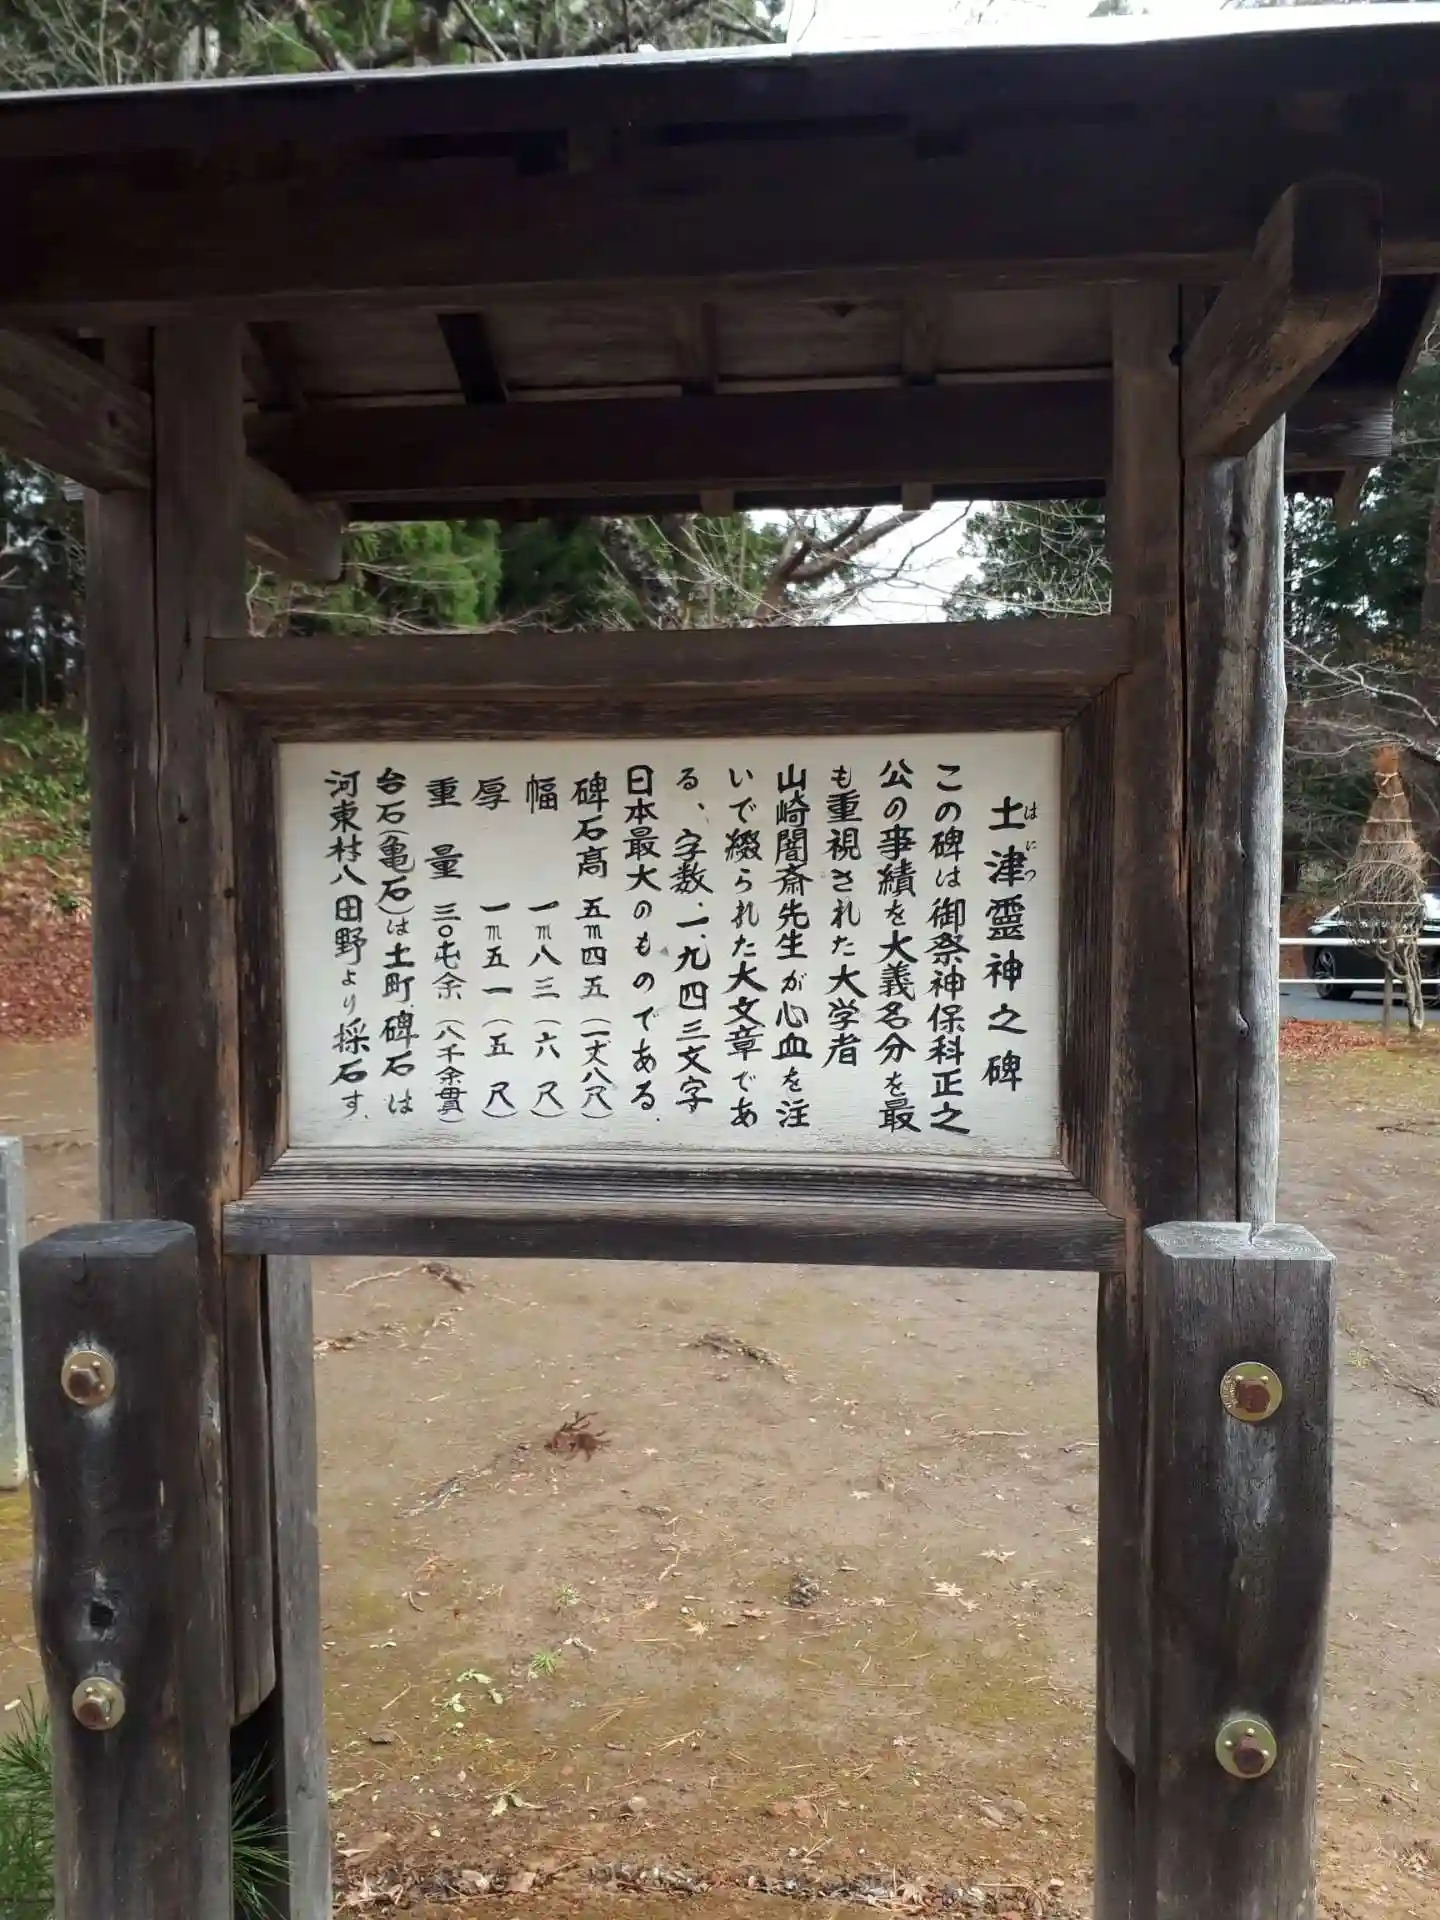 土津靈神之碑
はにつ
この碑は御祭神保科正之
公の事績を大義名分を最
も重視された大学者
山崎闇斎先生が心血を注
いで綴られた大文章であ
る、字数、一、九四三文字
日本最大のものである。
碑石高 五m四五(一丈八尺)
幅 一m八三(六尺)
厚 一m五一(五尺)
重量 三〇屯余(八千余貫)
台石(亀石)は土町、碑石は
河東村八田野より採石す。